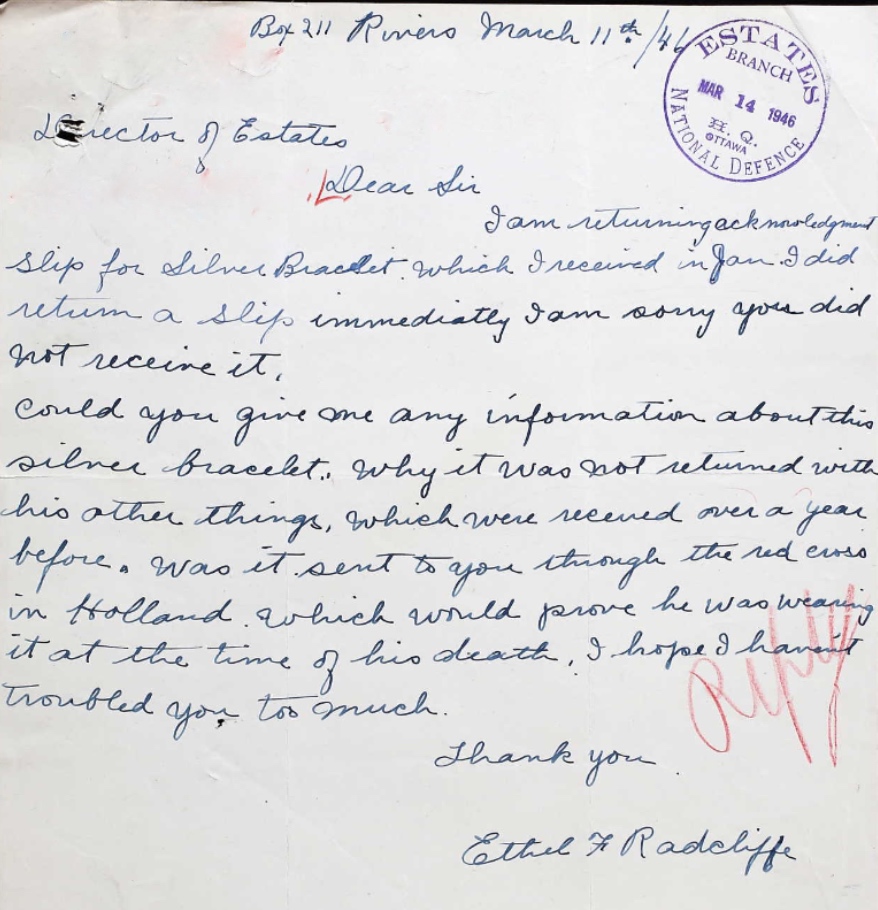 Box 211 Rivers March 11th/46
ESTATES
BRANCH
MAR 14 1946
H. Q.
OTTAWA
NATIONAL DEFENCE
Director of Estates
Dear Sir
I am returning acknowledgment
slip for Silver Bracelet. which I received in Jan. I did
return a slip immediatly I am sorry you did
not receive it.
Could you give me any information about this
silver bracelet. Why it was not returned with
his other things, which were received over a year
before. Was it sent to you through the red cross
in Holland. which would prove he was wearing
it at the time of his death. I hope I havent
troubled you too much.
Reply
Thank you
Ethel F Radcliffe